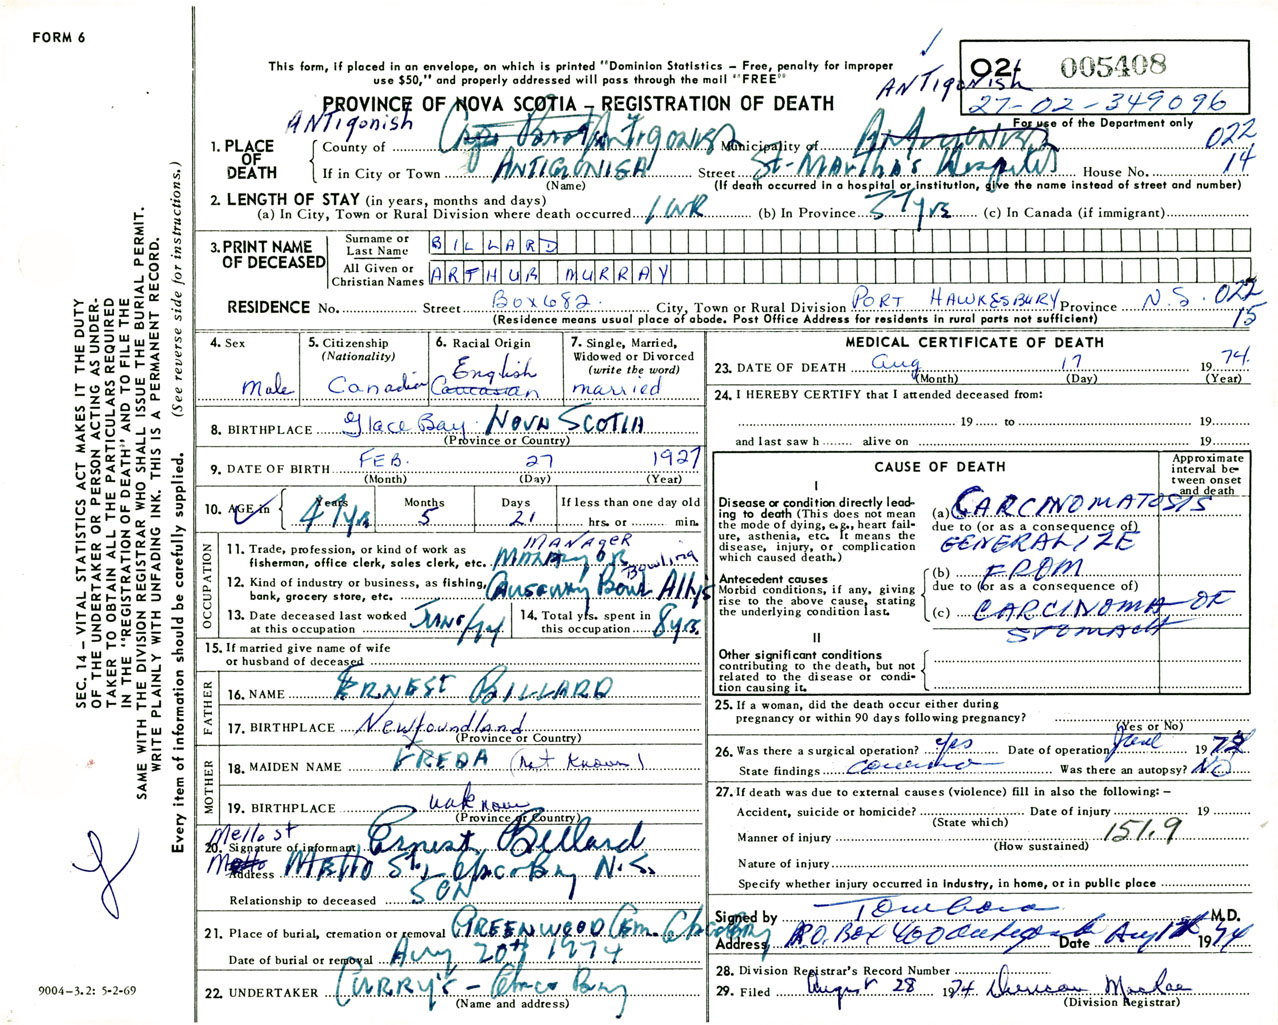 FORM 6
This form, if placed in an envelope, on which is printed "Dominion Statistics – Free, penalty for improper
use $50," and properly addressed will pass through the mail "FREE"
02- 005408
27-02-349096
For use of the Department only
PROVINCE OF NOVA SCOTIA – REGISTRATION OF DEATH
ANTIgonish
ANTIgonish
1. PLACE OF DEATH
County of Antigonish Municipality of Antigonish 022
If in City or Town ANTIGONISH Street St-Martha's Hospital House No. 14
(Name) (If death occurred in a hospital or institution, give the name instead of street and number)
2. LENGTH OF STAY (in years, months and days)
(a) In City, Town or Rural Division where death occurred 1 WK (b) In Province 37 yrs (c) In Canada (if immigrant)
3. PRINT NAME OF DECEASED
Surname or Last Name BILLARD
All Given or Christian Names ARTHUR MURRAY
RESIDENCE No. Street Box 682 City, Town or Rural Division PORT HAWKESBURY Province N.S. 022
(Residence means usual place of abode. Post Office Address for residents in rural parts not sufficient) 15
4. Sex
Male
5. Citizenship
(Nationality)
Canadian
6. Racial Origin
English
Caucasian
7. Single, Married,
Widowed or Divorced
(write the word)
married
8. BIRTHPLACE Glace Bay NOVA SCOTIA
(Province or Country)
9. DATE OF BIRTH FEB. 27 1927
(Month) (Day) (Year)
10. AGE in 47 yrs Years 5 Months 21 Days If less than one day old
hrs. or min.
OCCUPATION
MANAGER
11. Trade, profession, or kind of work as
fisherman, office clerk, sales clerk, etc. Manager
Bowling
12. Kind of industry or business, as fishing,
bank, grocery store, etc. Causeway Bowl Alleys
13. Date deceased last worked
at this occupation June/74
14. Total yrs. spent in
this occupation 8 yrs.
15. If married give name of wife
or husband of deceased
FATHER
16. NAME ERNEST BILLARD
17. BIRTHPLACE Newfoundland
(Province or Country)
MOTHER
18. MAIDEN NAME FREDA (not known)
19. BIRTHPLACE unknown
(Province or Country)
Mello st
20. Signature of informant Ernest Billard
Address St., Glace Bay N.S.
Relationship to deceased SON
21. Place of burial, cremation or removal GREENWOOD Cem. Glace Bay
Date of burial or removal Aug 20th 1974
22. UNDERTAKER CURRY'S - Glace Bay
(Name and address)
MEDICAL CERTIFICATE OF DEATH
23. DATE OF DEATH Aug 17 1974
(Month) (Day) (Year)
24. I HEREBY CERTIFY that I attended deceased from:
19 to 19
and last saw h alive on 19
CAUSE OF DEATH
Approximate interval between onset and death
I
Disease or condition directly leading to death (This does not mean the mode of dying, e.g., heart failure, asthenia, etc. It means the disease, injury, or complication which caused death.)
(a) CARCINOMATOSIS
due to (or as a consequence of)
GENERALIZE
Antecedent causes
Morbid conditions, if any, giving rise to the above cause, stating the underlying condition last.
(b) FROM
due to (or as a consequence of)
(c) CARCINOMA OF
STOMACH
II
Other significant conditions
contributing to the death, but not related to the disease or condition causing it.
25. If a woman, did the death occur either during
pregnancy or within 90 days following pregnancy?
(Yes or No)
26. Was there a surgical operation? yes Date of operation 1974
State findings Was there an autopsy? NO
27. If death was due to external causes (violence) fill in also the following: –
Accident, suicide or homicide? Date of injury 19
(State which)
Manner of injury 151.9
(How sustained)
Nature of injury
Specify whether injury occurred in industry, in home, or in public place
Signed by M.D.
Address P.O. Box 400 Antigonish Date Aug 1974
28. Division Registrar's Record Number
29. Filed August 28 1974 Duncan MacRae
(Division Registrar)
SEC. 14 – VITAL STATISTICS ACT MAKES IT THE DUTY
OF THE UNDERTAKER OR PERSON ACTING AS UNDER-
TAKER TO OBTAIN ALL THE PARTICULARS REQUIRED
IN THE "REGISTRATION OF DEATH" AND TO FILE THE
SAME WITH THE DIVISION REGISTRAR WHO SHALL ISSUE THE BURIAL PERMIT.
WRITE PLAINLY WITH UNFADING INK. THIS IS A PERMANENT RECORD.
Every item of information should be carefully supplied. (See reverse side for instructions.)
9004-3.2: 5-2-69